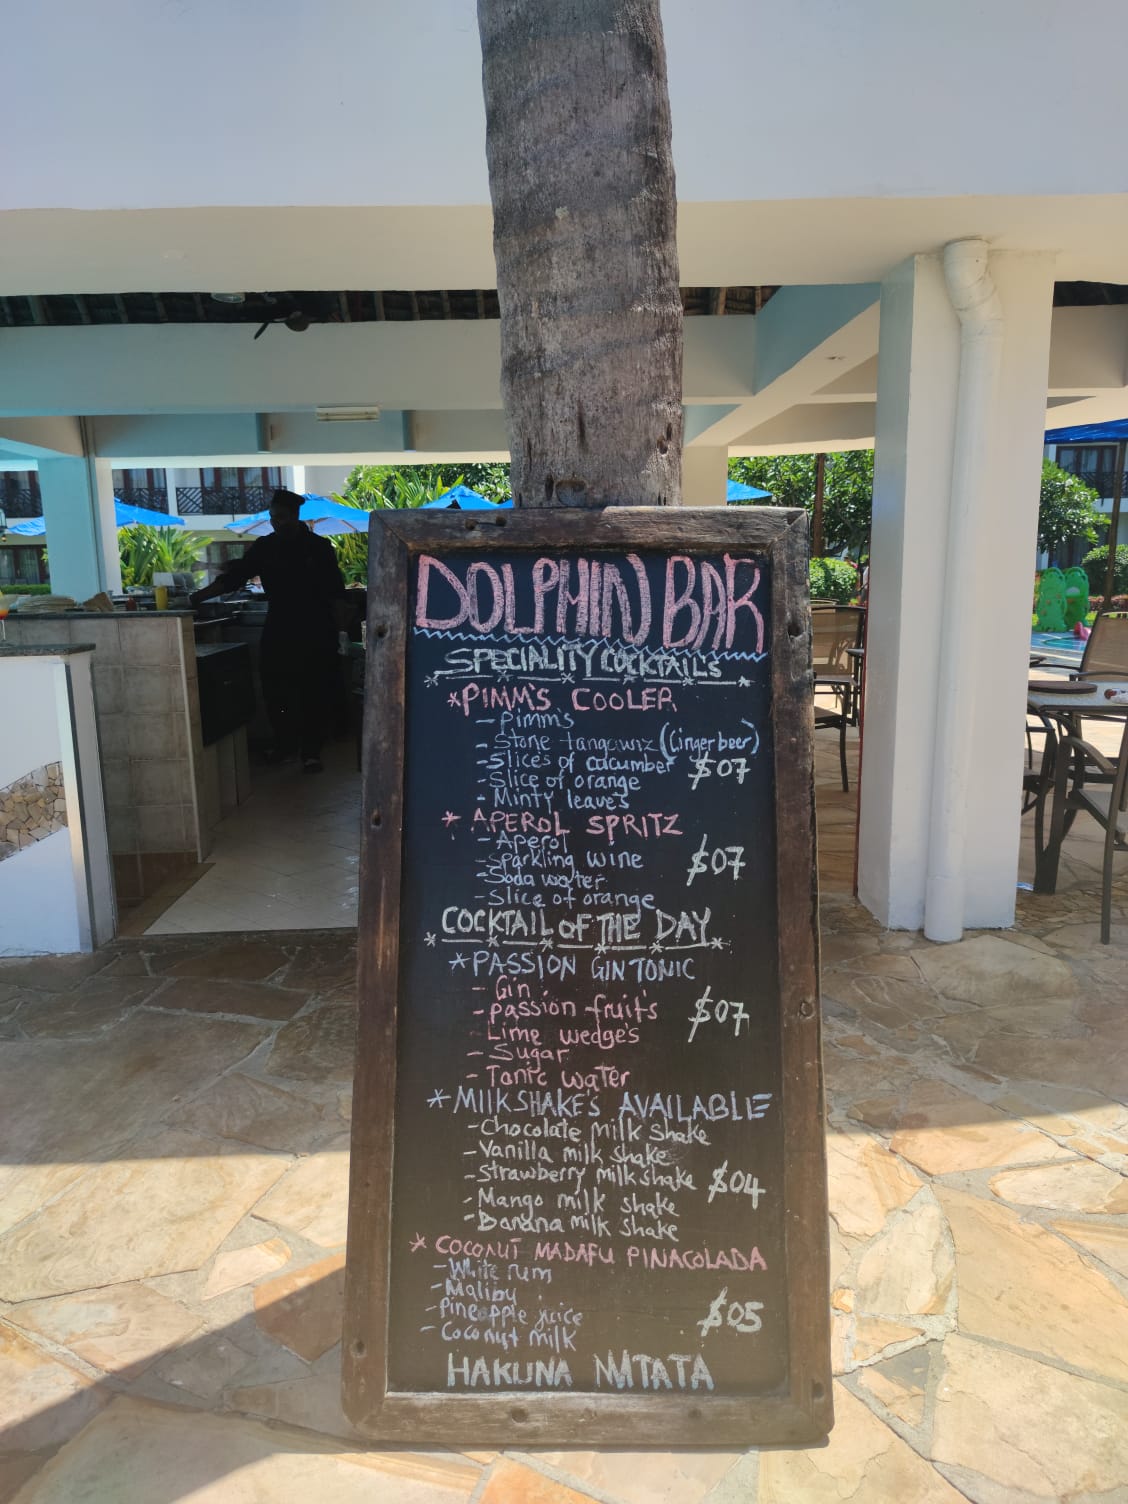 DOLPHIN BAR
SPECIALITY COCKTAIL'S
*PIMM'S COOLER
- Pimm's
- Stone tangawiz (Ginger beer)
- Slice's of cucumber $07
- Slice of orange
- Minty leave's
* APEROL SPRITZ
- Aperol
- Sparkling wine $07
- Soda water
- Slice of orange
COCKTAIL OF THE DAY
*PASSION GIN TONIC
- Gin
- passion fruit's $07
- Lime wedge's
- Sugar
- Tonic water
*MILKSHAKE'S AVAILABLE
- Chocolate milk shake
- Vanilla milk shake
- Strawberry milk shake $04
- Mango milk shake
- Banana milk shake
* COCONUT MADAFU PINACOLADA
- White rum
- Malibu
- Pineapple juice $05
- Coconut milk
HAKUNA MATATA